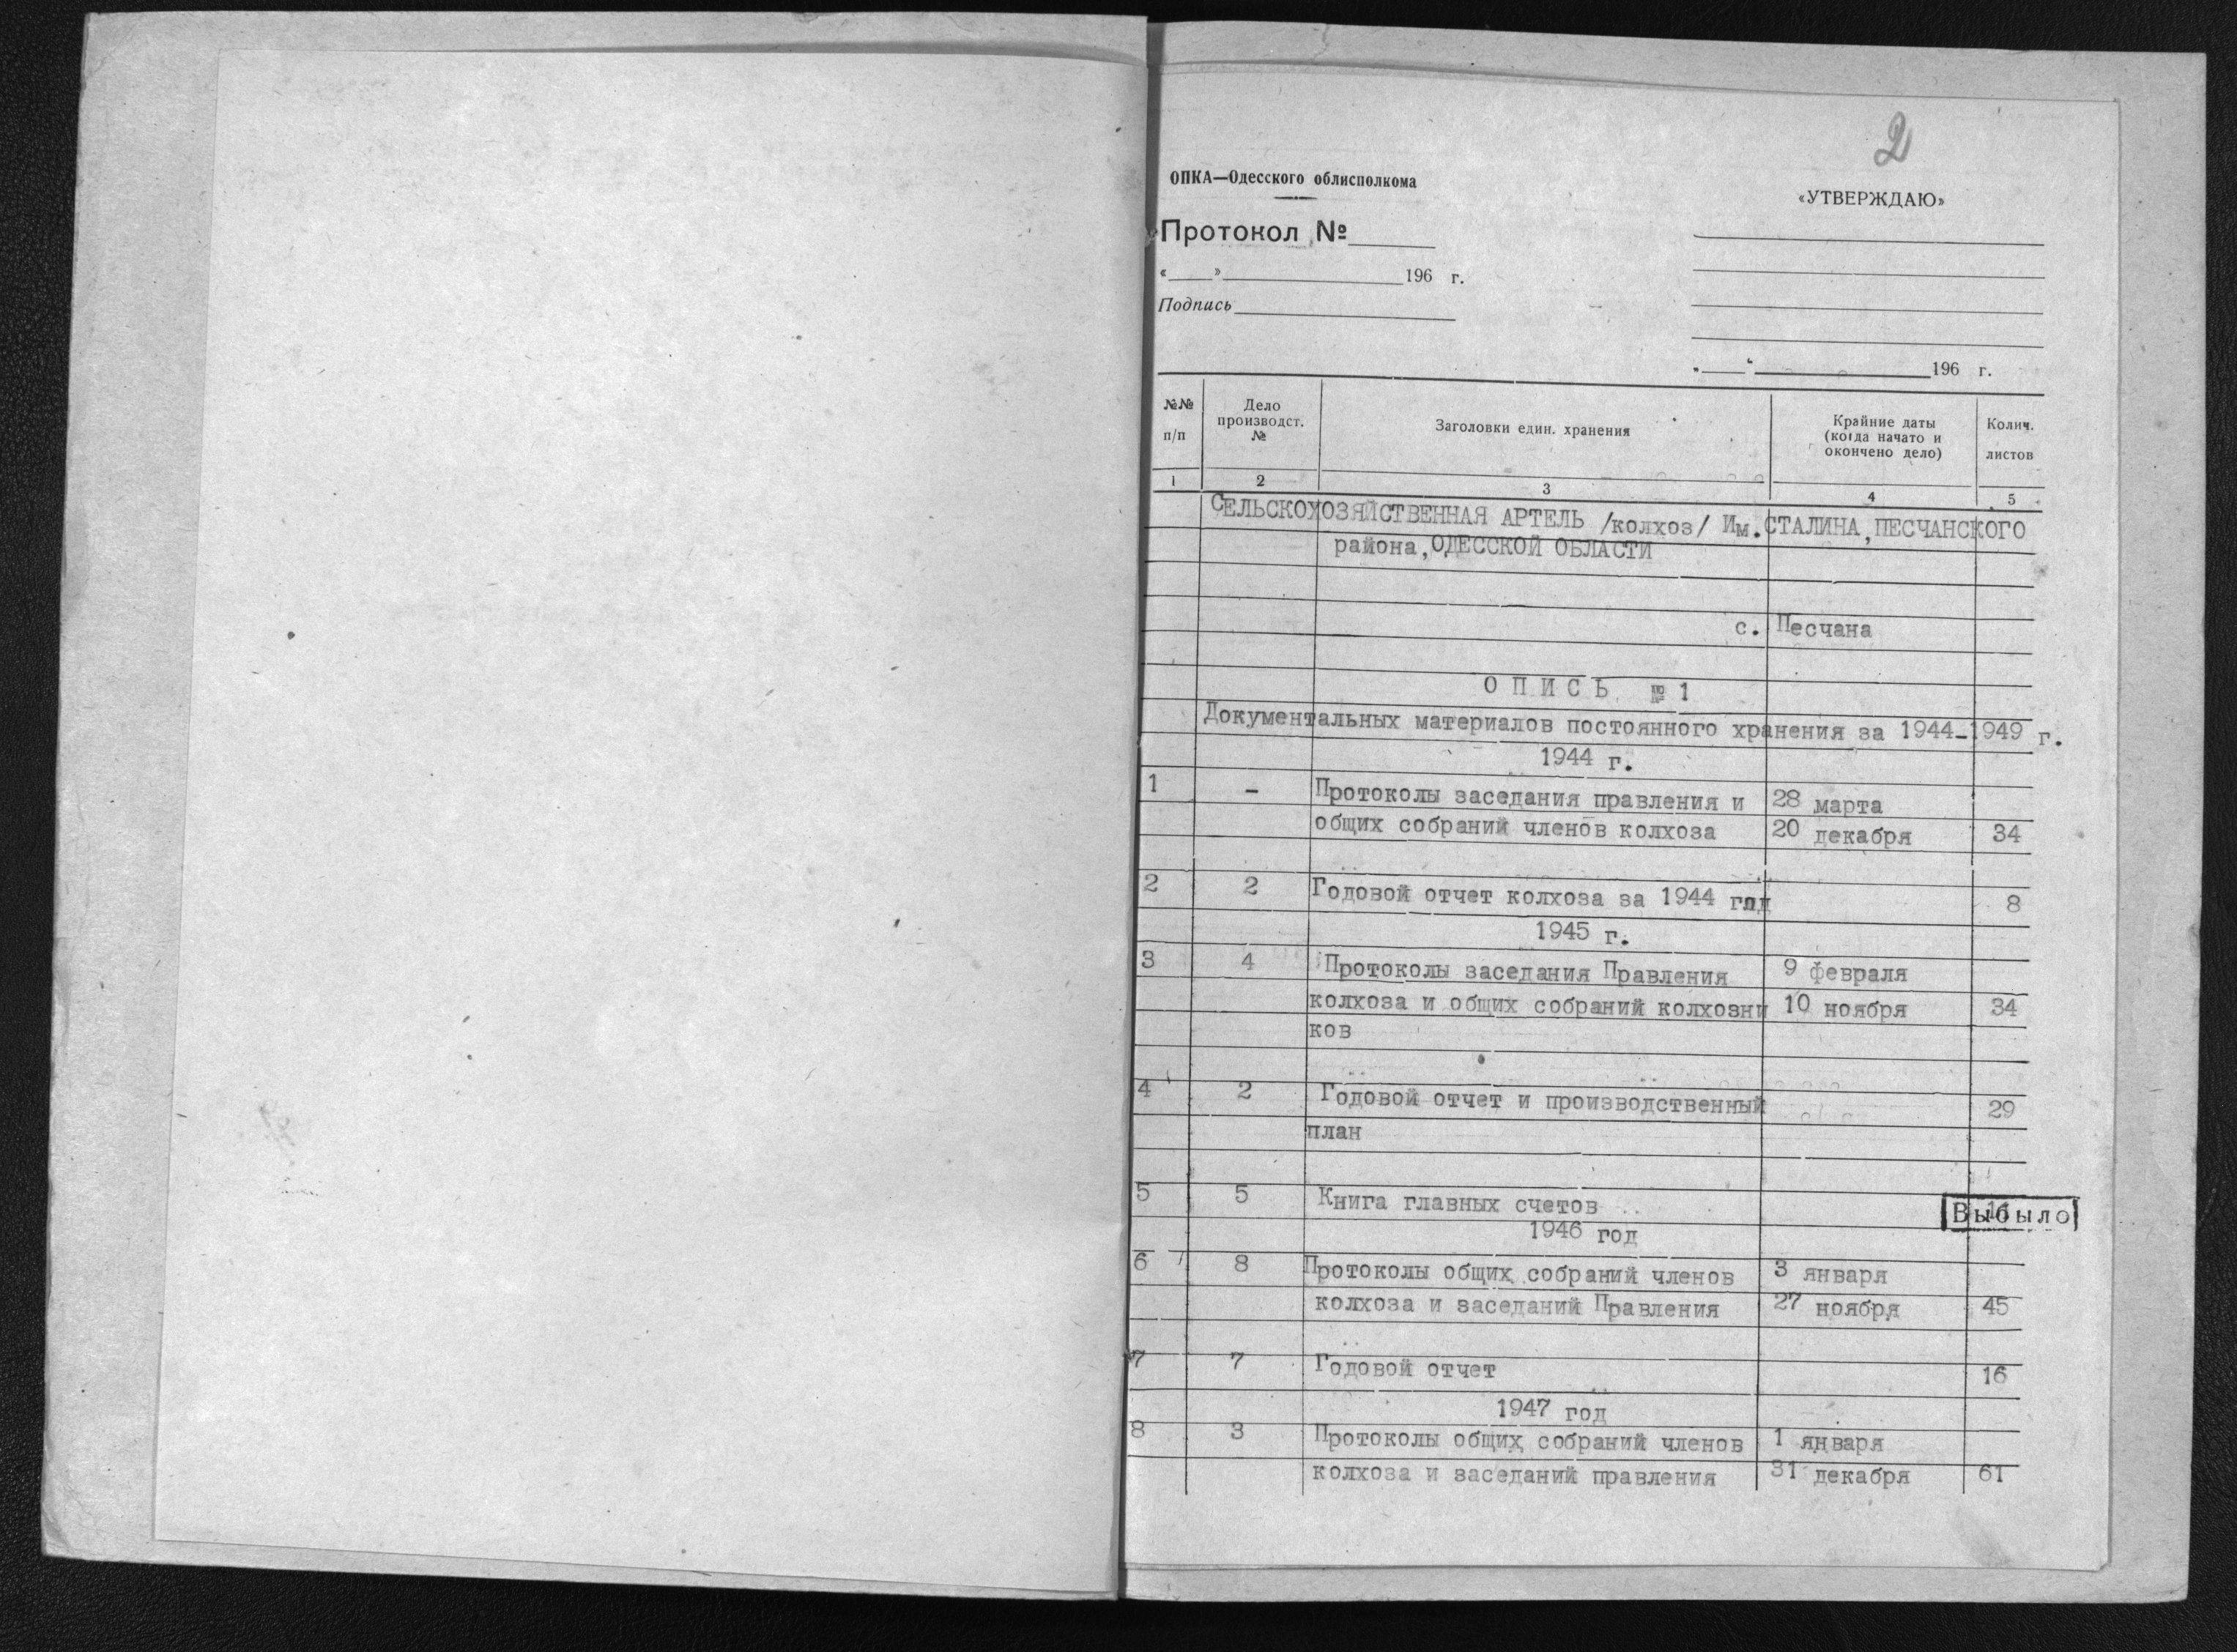 2
ОПКА—Одесского облисполкома
«УТВЕРЖДАЮ»
Протокол №
« » 196 г.
Подпись
„ “ 196 г.
№№ п/п
Дело производст. №
Заголовки един. хранения
Крайние даты (когда начато и окончено дело)
Колич. листов
1 2 3 4 5
СЕЛЬСКОХОЗЯЙСТВЕННАЯ АРТЕЛЬ /колхоз/ Им.СТАЛИНА,ПЕСЧАНСКОГО
района,ОДЕССКОЙ ОБЛАСТИ
с. Песчана
О П И С Ь № 1
Документальных материалов постоянного хранения за 1944-1949 г.
1944 г.
1 - Протоколы заседания правления и 28 марта
общих собраний членов колхоза 20 декабря 34
2 2 Годовой отчет колхоза за 1944 год 8
1945 г.
3 4 Протоколы заседания Правления 9 февраля
колхоза и общих собраний колхозни 10 ноября 34
ков
4 2 Годовой отчет и производственный 29
план
5 5 Книга главных счетов Выбыло
1946 год
6 8 Протоколы общих собраний членов 3 января
колхоза и заседаний Правления 27 ноября 45
7 7 Годовой отчет 16
1947 год
8 3 Протоколы общих собраний членов 1 января
колхоза и заседаний правления 31 декабря 61